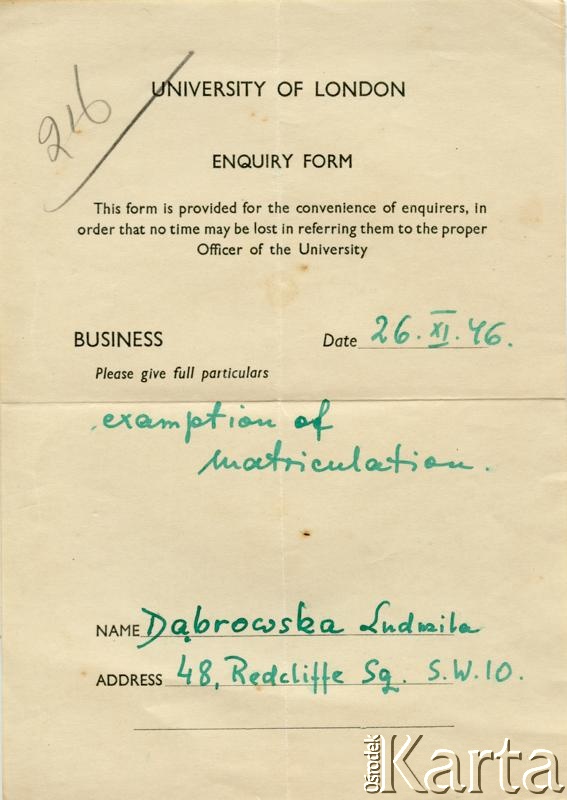 216
UNIVERSITY OF LONDON
ENQUIRY FORM
This form is provided for the convenience of enquirers, in
order that no time may be lost in referring them to the proper
Officer of the University
BUSINESS Date 26. XI. 46.
Please give full particulars
examption of
matriculation.
NAME Dąbrowska Ludmiła
ADDRESS 48, Redcliffe Sq. S.W.10.
Ośrodek Karta